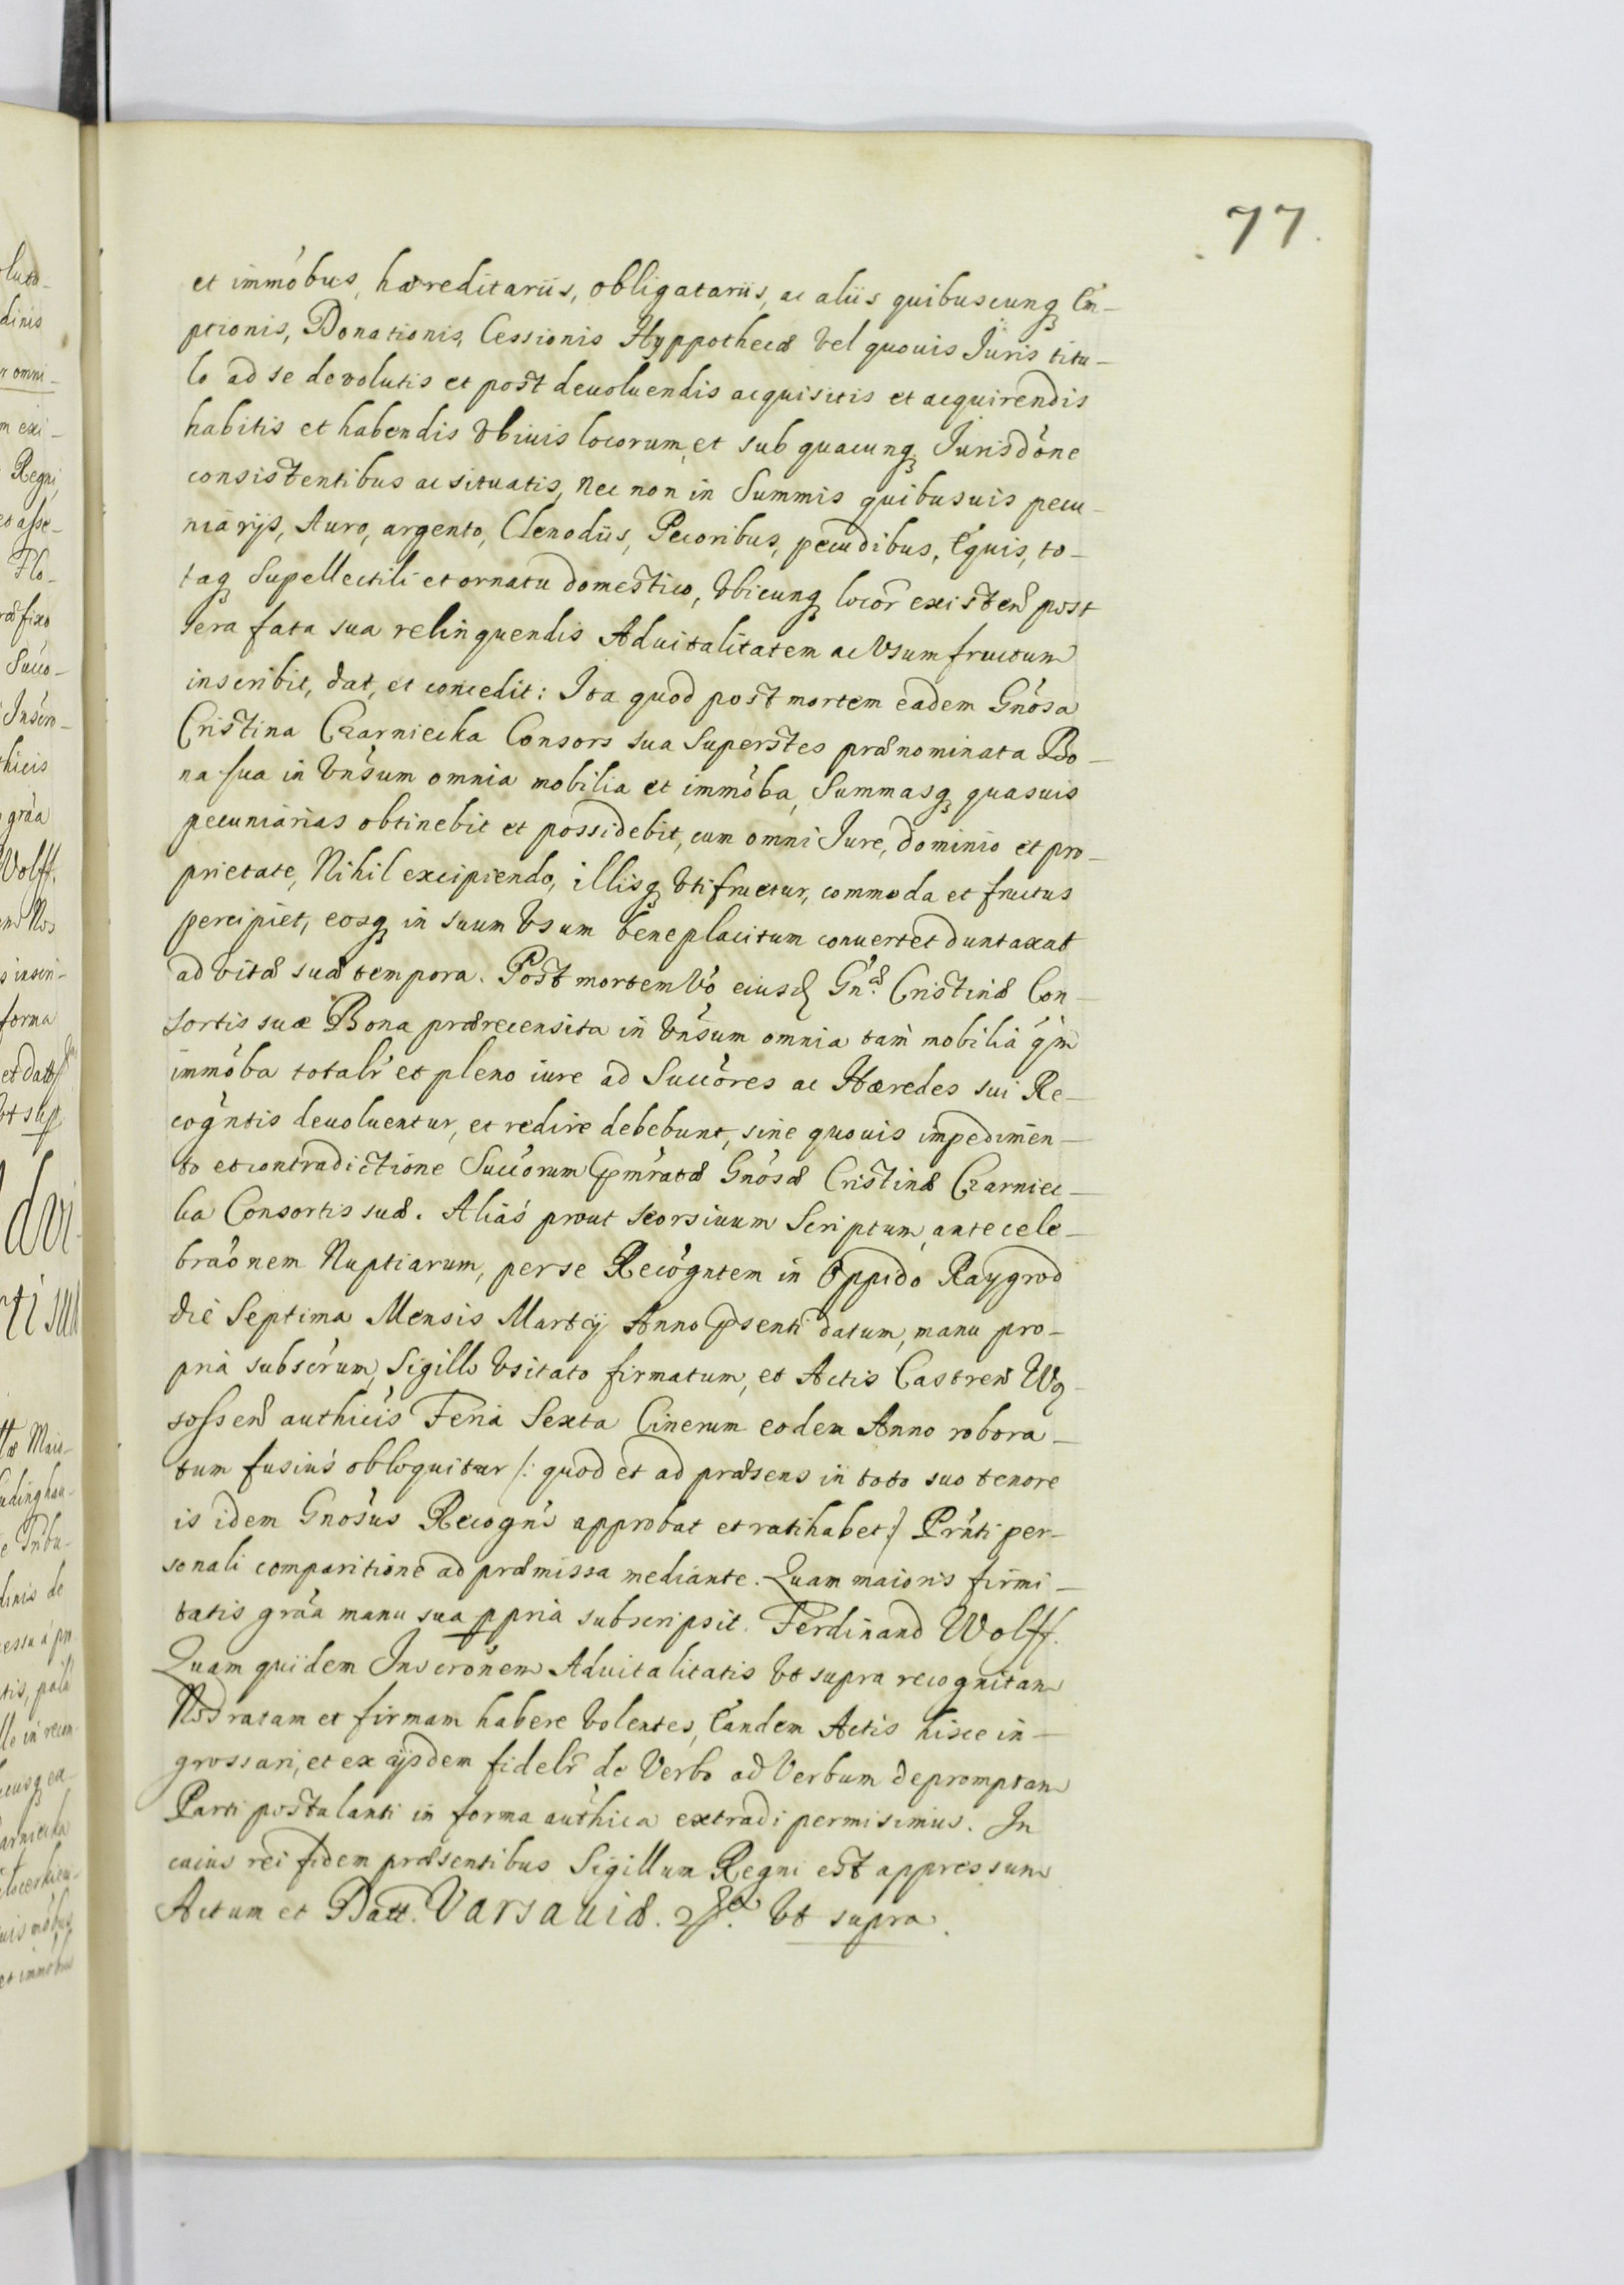 77.
et immóbus, hæreditariis, obligatariis, ac aliis quibuscunq́ Em-
ptionis, Donationis, Cessionis Hyppothecæ Vel quouis Juris titu-
lo ad se devolutis et post deuoluendis acquisitis et acquirendis
habitis et habendis Vbiuis locorum, et sub quacunq́ Jurisdóne
consistentibus ac situatis, nec non in Summis quibusuis pecu-
niarijs, Auro, argento, Clenodiis, Pecoribus, pecudibus, Equis, to-
taq́ Supellectili et ornatu domestico, Vbicunq́ locor existen post
sera fata sua relinquendis Aduitalitatem ac Vsumfructum
inscribit, dat, et concedit: Ita quod post mortem eadem Gnósa
Cristina Czarniecka Consors sua Superstes prænominata Bo-
na sua in Vnśum omnia mobilia et immóba, Summasq́ quasuis
pecuniarias obtinebit et possidebit, cum omni Jure, dominio et pro-
prietate, Nihil excipiendo, illisq́ Vtifruetur, commoda et fructus
percipiet, eosq́ in suum Vsum beneplacitum conuertet duntaxat
ad vitæ suæ tempora. Post mortem Vó eiusd Gnæ. Cristinæ Con-
sortis suæ Bona prærecensita in Vnśum omnia tam mobilia q́m
immóba totalr et pleno iure ad Succóres ac Hæredes sui Re-
cogńtis deuoluentur, et redire debebunt, sine quouis impedimen-
to et contradictione Succórum pmŕatæ Gnósæ Cristinæ Czarniec-
ka Consortis suæ. Aliás prout Seorsiuum Scriptum, ante cele-
braónem Nuptiarum, per se Recógntem in Oppido Raygrod
die Septima Mensis Martij Anno psenti datum, manu pro-
pria subscŕum, Sigillo Vsitato firmatum, et Actis Castren Wą-
sossen authićis Feria Sexta Cinerum eodem Anno robora-
tum fusiús obloquitur /: quod et ad præsens in toto suo tenore
is idem Gnósus Recogńs approbat et ratihabet :/ Prńti per-
sonali comparitione ad præmissa mediante. Quam maioris firmi-
tatis gráa manu sua ppria subscripsit. Ferdinand Wolff.
Quam quidem Inscrónem Aduitalitatis Vt supra recognitam
Nos ratam et firmam habere Volentes, Eandem Actis hisce in-
grossari, et ex ijsdem fidelr de Verbo ad Verbum depromptam
Parti postulanti in forma authica extradi permisimus. In
cuius rei fidem præsentibus Sigillum Regni est appressum
Actum et Datt. Varsauiæ. Vt supra.